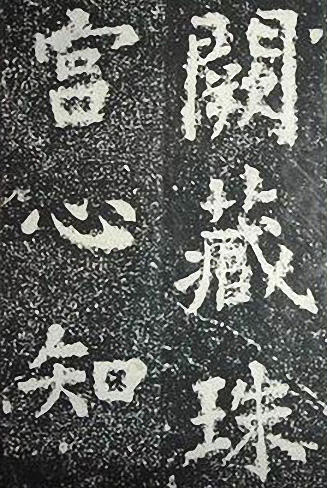 闕藏珠
宮心知